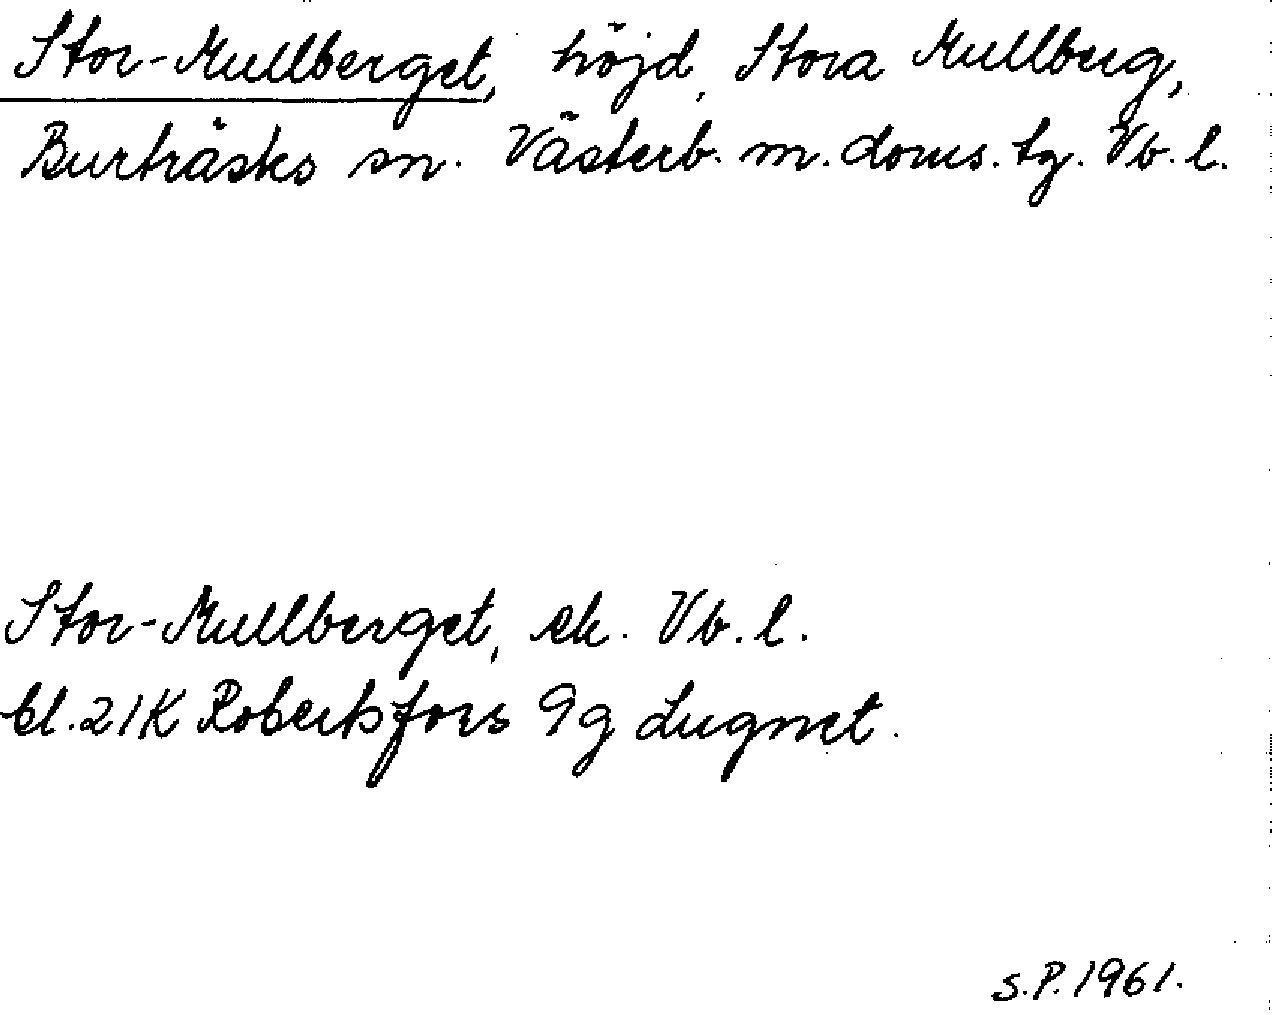 Stor-Mullberget, höjd, Stora Mullberg,
Burträsks sn. Västerb. m. doms. tg. Vb. l.
Stor-Mullberget, ek. Vb. l.
bl. 21K Robertsfors 9g Lugnet.
S.P. 1961.